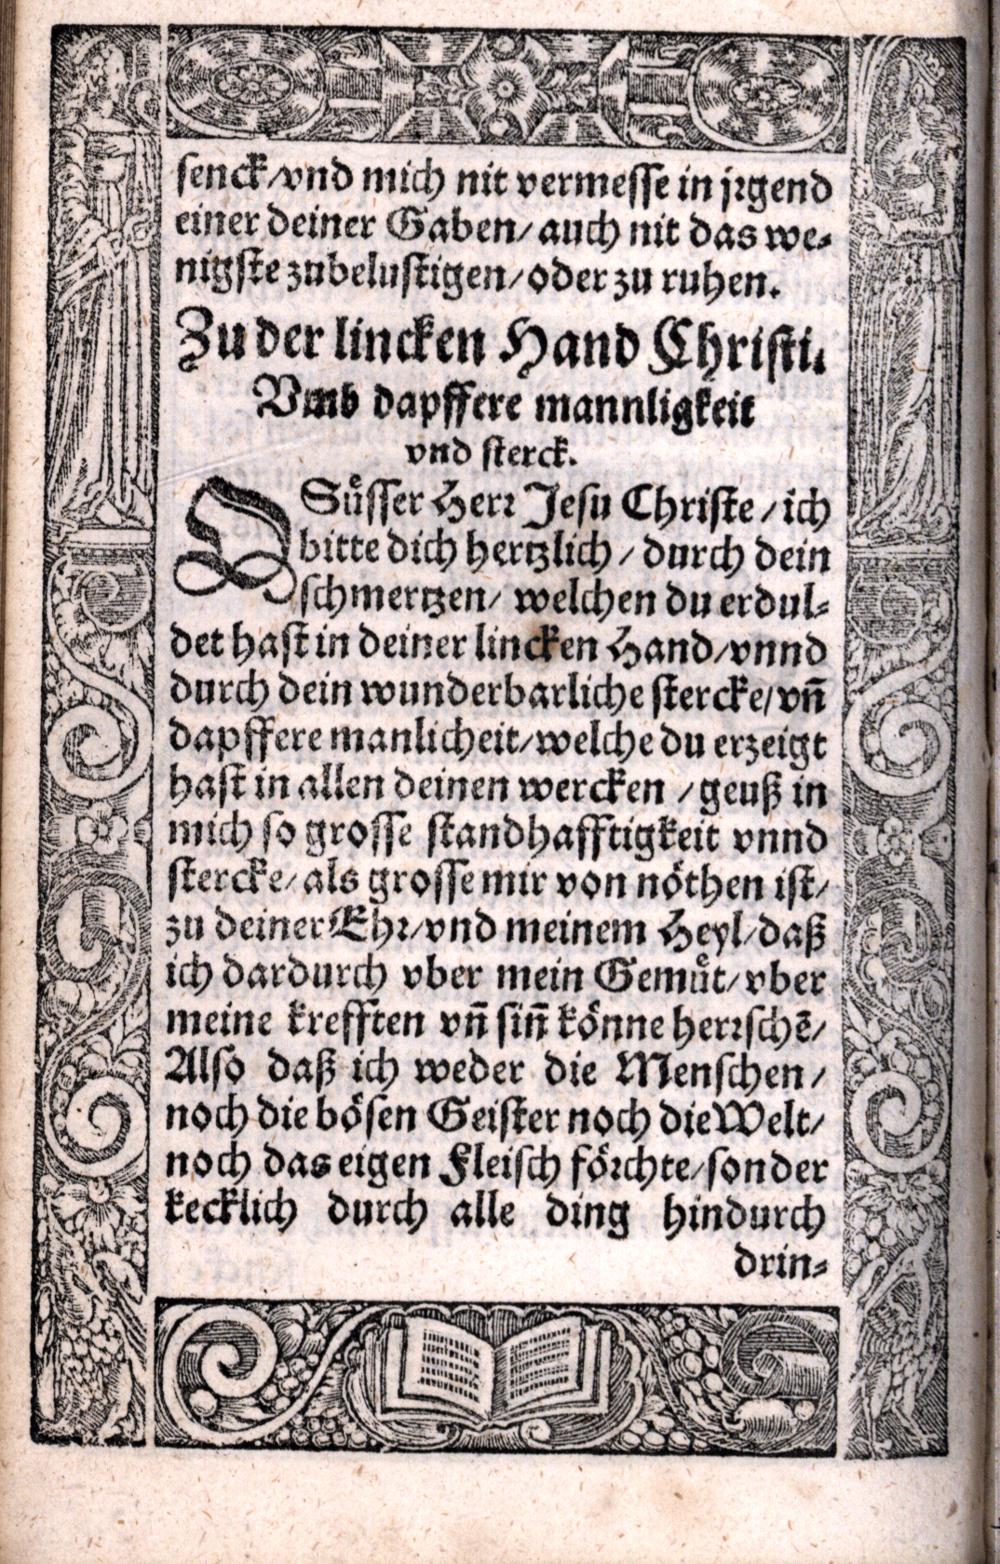 senck/vnd mich nit vermesse in jrgend
einer deiner Gaben/ auch nit das we⸗
nigste zubelustigen/ oder zu ruhen.
Zu der lincken Hand Christi.
Vmb dapffere mannligkeit
vnd sterck.
O Süsser Herr Jesu Christe / ich
bitte dich hertzlich / durch dein
schmertzen/ welchen du erdul⸗
det hast in deiner lincken Hand/vnnd
durch dein wunderbarliche stercke/ vñ
dapffere manlicheit/welche du erzeigt
hast in allen deinen wercken / geuß in
mich so grosse standhafftigkeit vnnd
stercke/ als grosse mir von nöthen ist/
zu deiner Ehr/vnd meinem Heyl/daß
ich dardurch vber mein Gemüt/ vber
meine krefften vñ siñ könne herrschē/
Also daß ich weder die Menschen/
noch die bösen Geister noch die Welt/
noch das eigen Fleisch förchte/sonder
kecklich durch alle ding hindurch
drin⸗